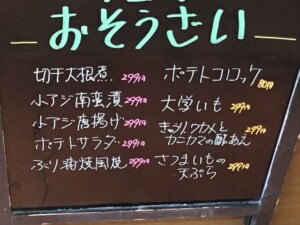 おそうざい
切干大根煮 299円
小アジ南蛮漬 299円
小アジ唐揚げ 299円
ポテトサラダ 299円
ぶり油焼風焼 299円
ポテトコロッケ 80円
大学いも 299円
きゅうり、ワカメと
カニカマの酢あえ 299円
さつまいもの
天ぷら 299円